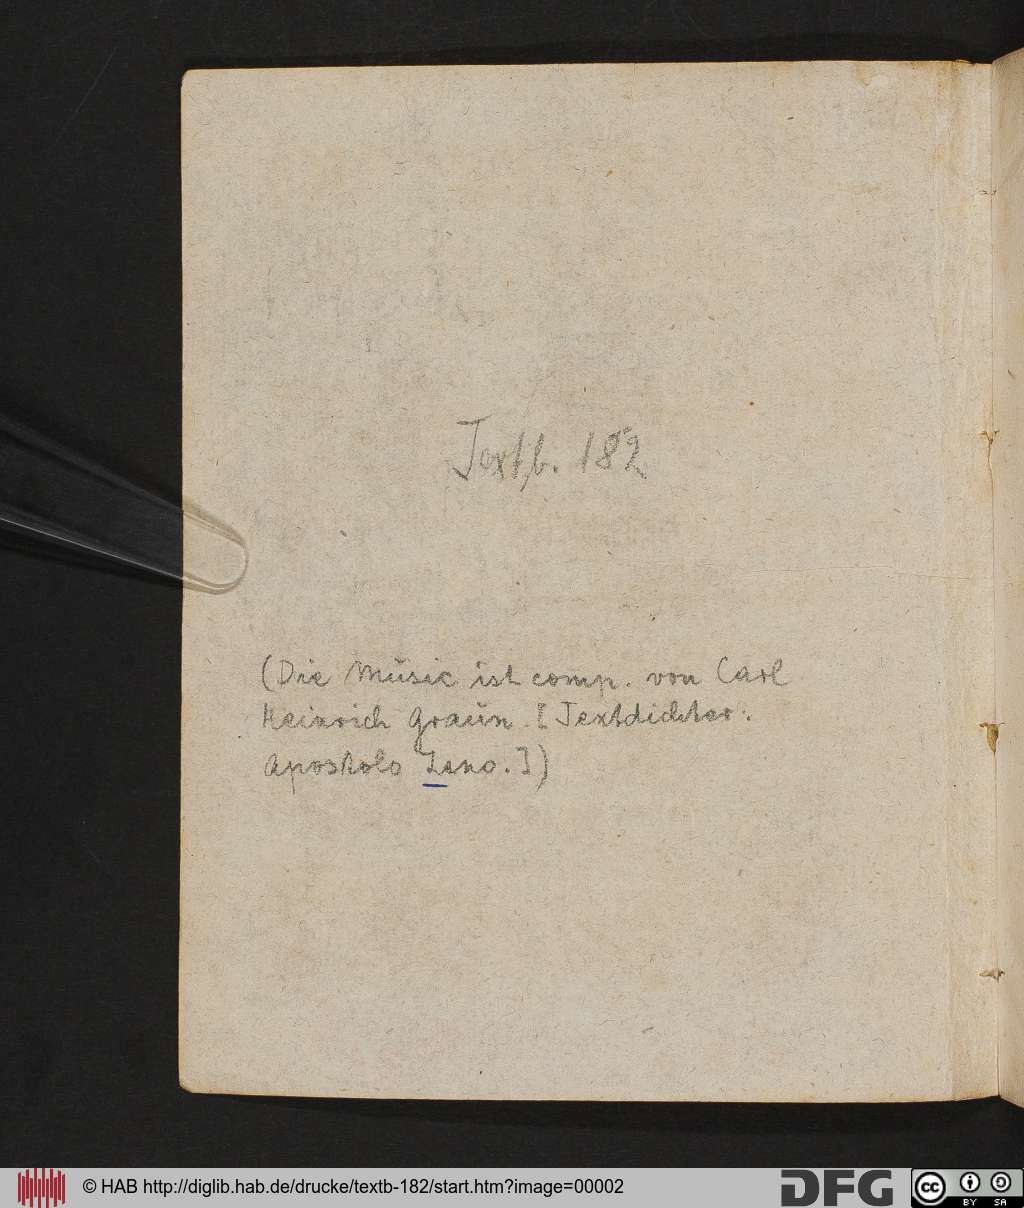 Textb. 182
(Die Music ist comp. von Carl
Heinrich Graun [Textdichter:
Apostolo Zeno.])
© HAB http://diglib.hab.de/drucke/textb-182/start.htm?image=00002
DFG
cc BY SA